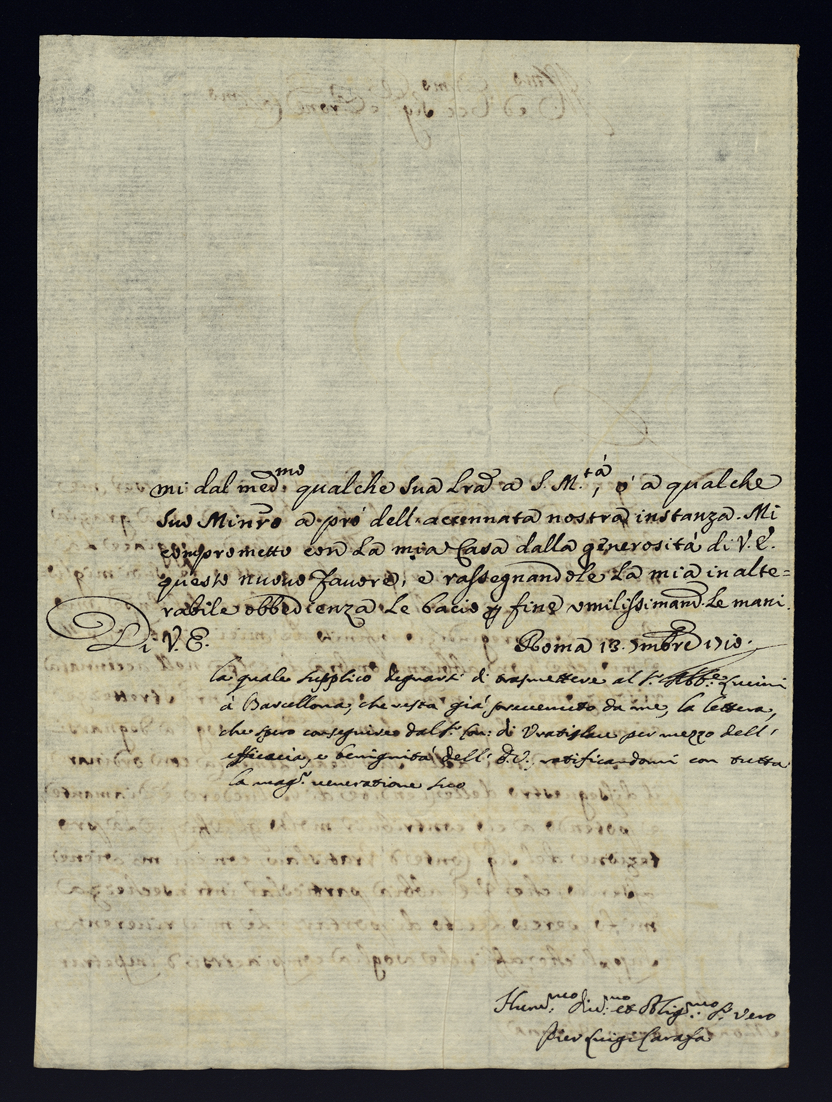 mi dal med.mo qualche sua Lra a S. M.tà, ò a qualche
suo Minro a prò dell'accennata nostra instanza. Mi
comprometto con la mia Casa dalla generosità di V. E.
questo nuovo favore, e rassegnandole la mia inalte=
rabile obbedienza le bacio p fine umilissimam.e le mani.
Di V. E. Roma 13. 7mbre 1710.
la quale supplico degnarsi di trasmettere al S.r Abb.e Lucini
à Barcellona, che resta già prevenuto da me, la lettera,
che spero conseguire dal S.r Con: di Vratislau per mezzo dell'
efficacia, e benignità dell' E.V., ratificandomi con tutta
la mag.r veneratione suo
Hum.mo Div.mo et Oblig.mo S.r Vero
Pier Luigi Carafa